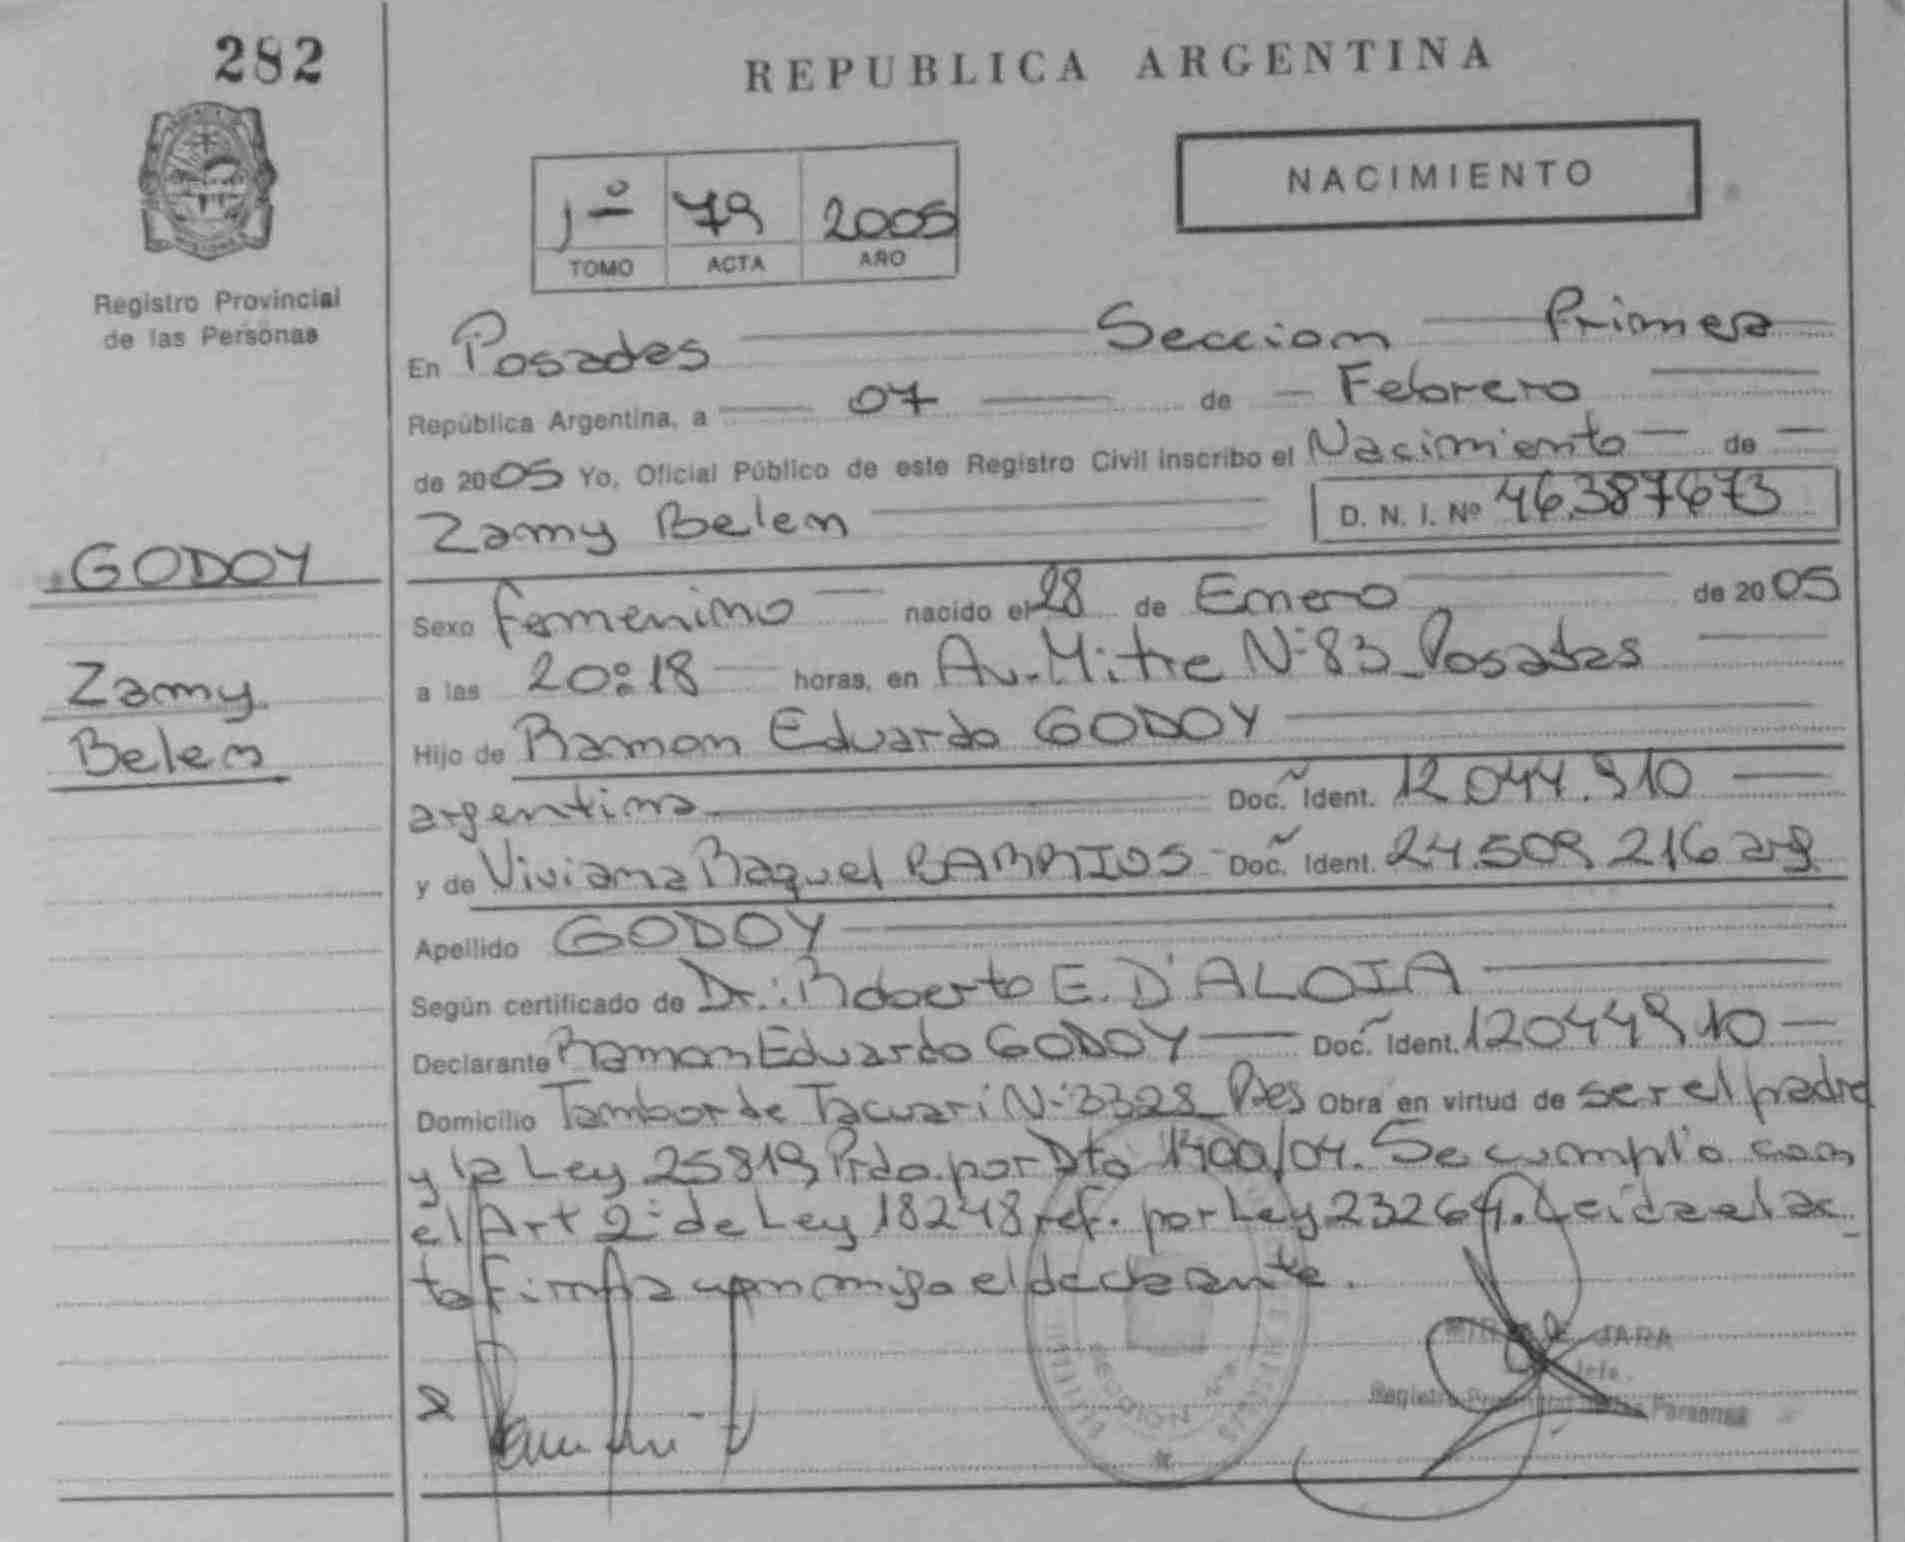 282
REPUBLICA ARGENTINA
NACIMIENTO
1º 79 2005
TOMO ACTA AÑO
Registro Provincial
de las Personas
En Posadas Seccion Primera
República Argentina, a 07 de Febrero
de 2005 Yo, Oficial Público de este Registro Civil inscribo el Nacimiento de
Zamy Belen D. N. I. Nº 46.387673
GODOY
Zamy
Belen
Sexo femenino nacido el 28 de Enero de 2005
a las 20:18 horas, en Av. Mitre Nº 83 Posadas
Hijo de Ramon Eduardo GODOY
argentino Doc. Ident. 12.044.910
y de Viviana Raquel BARRIOS Doc. Ident. 24.509.216 arg.
Apellido GODOY
Según certificado de Dr. Roberto E. D'ALOIA
Declarante Ramon Eduardo GODOY Doc. Ident. 12044910
Domicilio Tambor de Tacuari Nº 3328 Pdes Obra en virtud de ser el padre
y la Ley 25819 Prdo. por Dto 1400/04. Se cumplio con
el Art 2º de Ley 18248 ref. por Ley 23264. Leida el ac
ta firma conmigo el declarante.
JARA
Jefe
Registro Provincial de las Personas